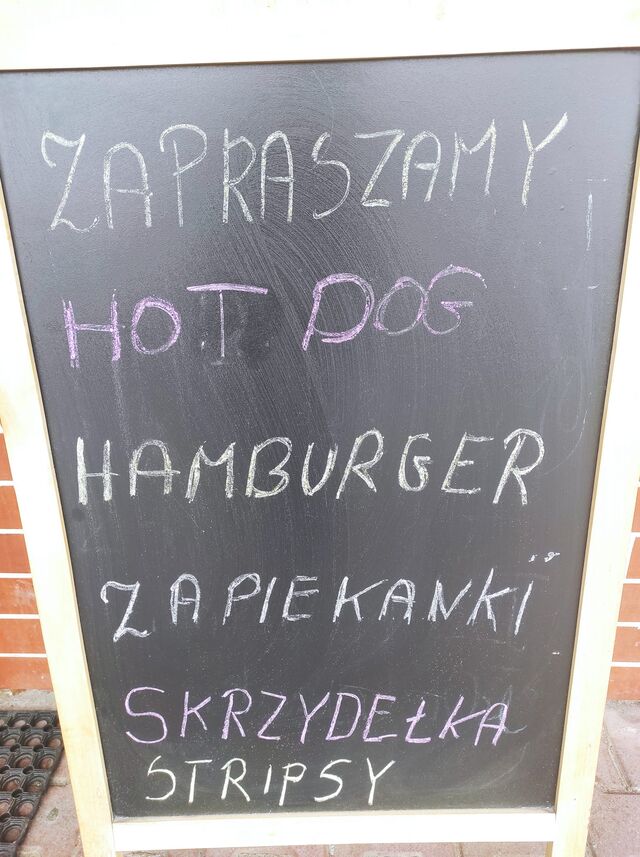 ZAPRASZAMY
HOT DOG
HAMBURGER
ZAPIEKANKI
SKRZYDEŁKA
STRIPSY